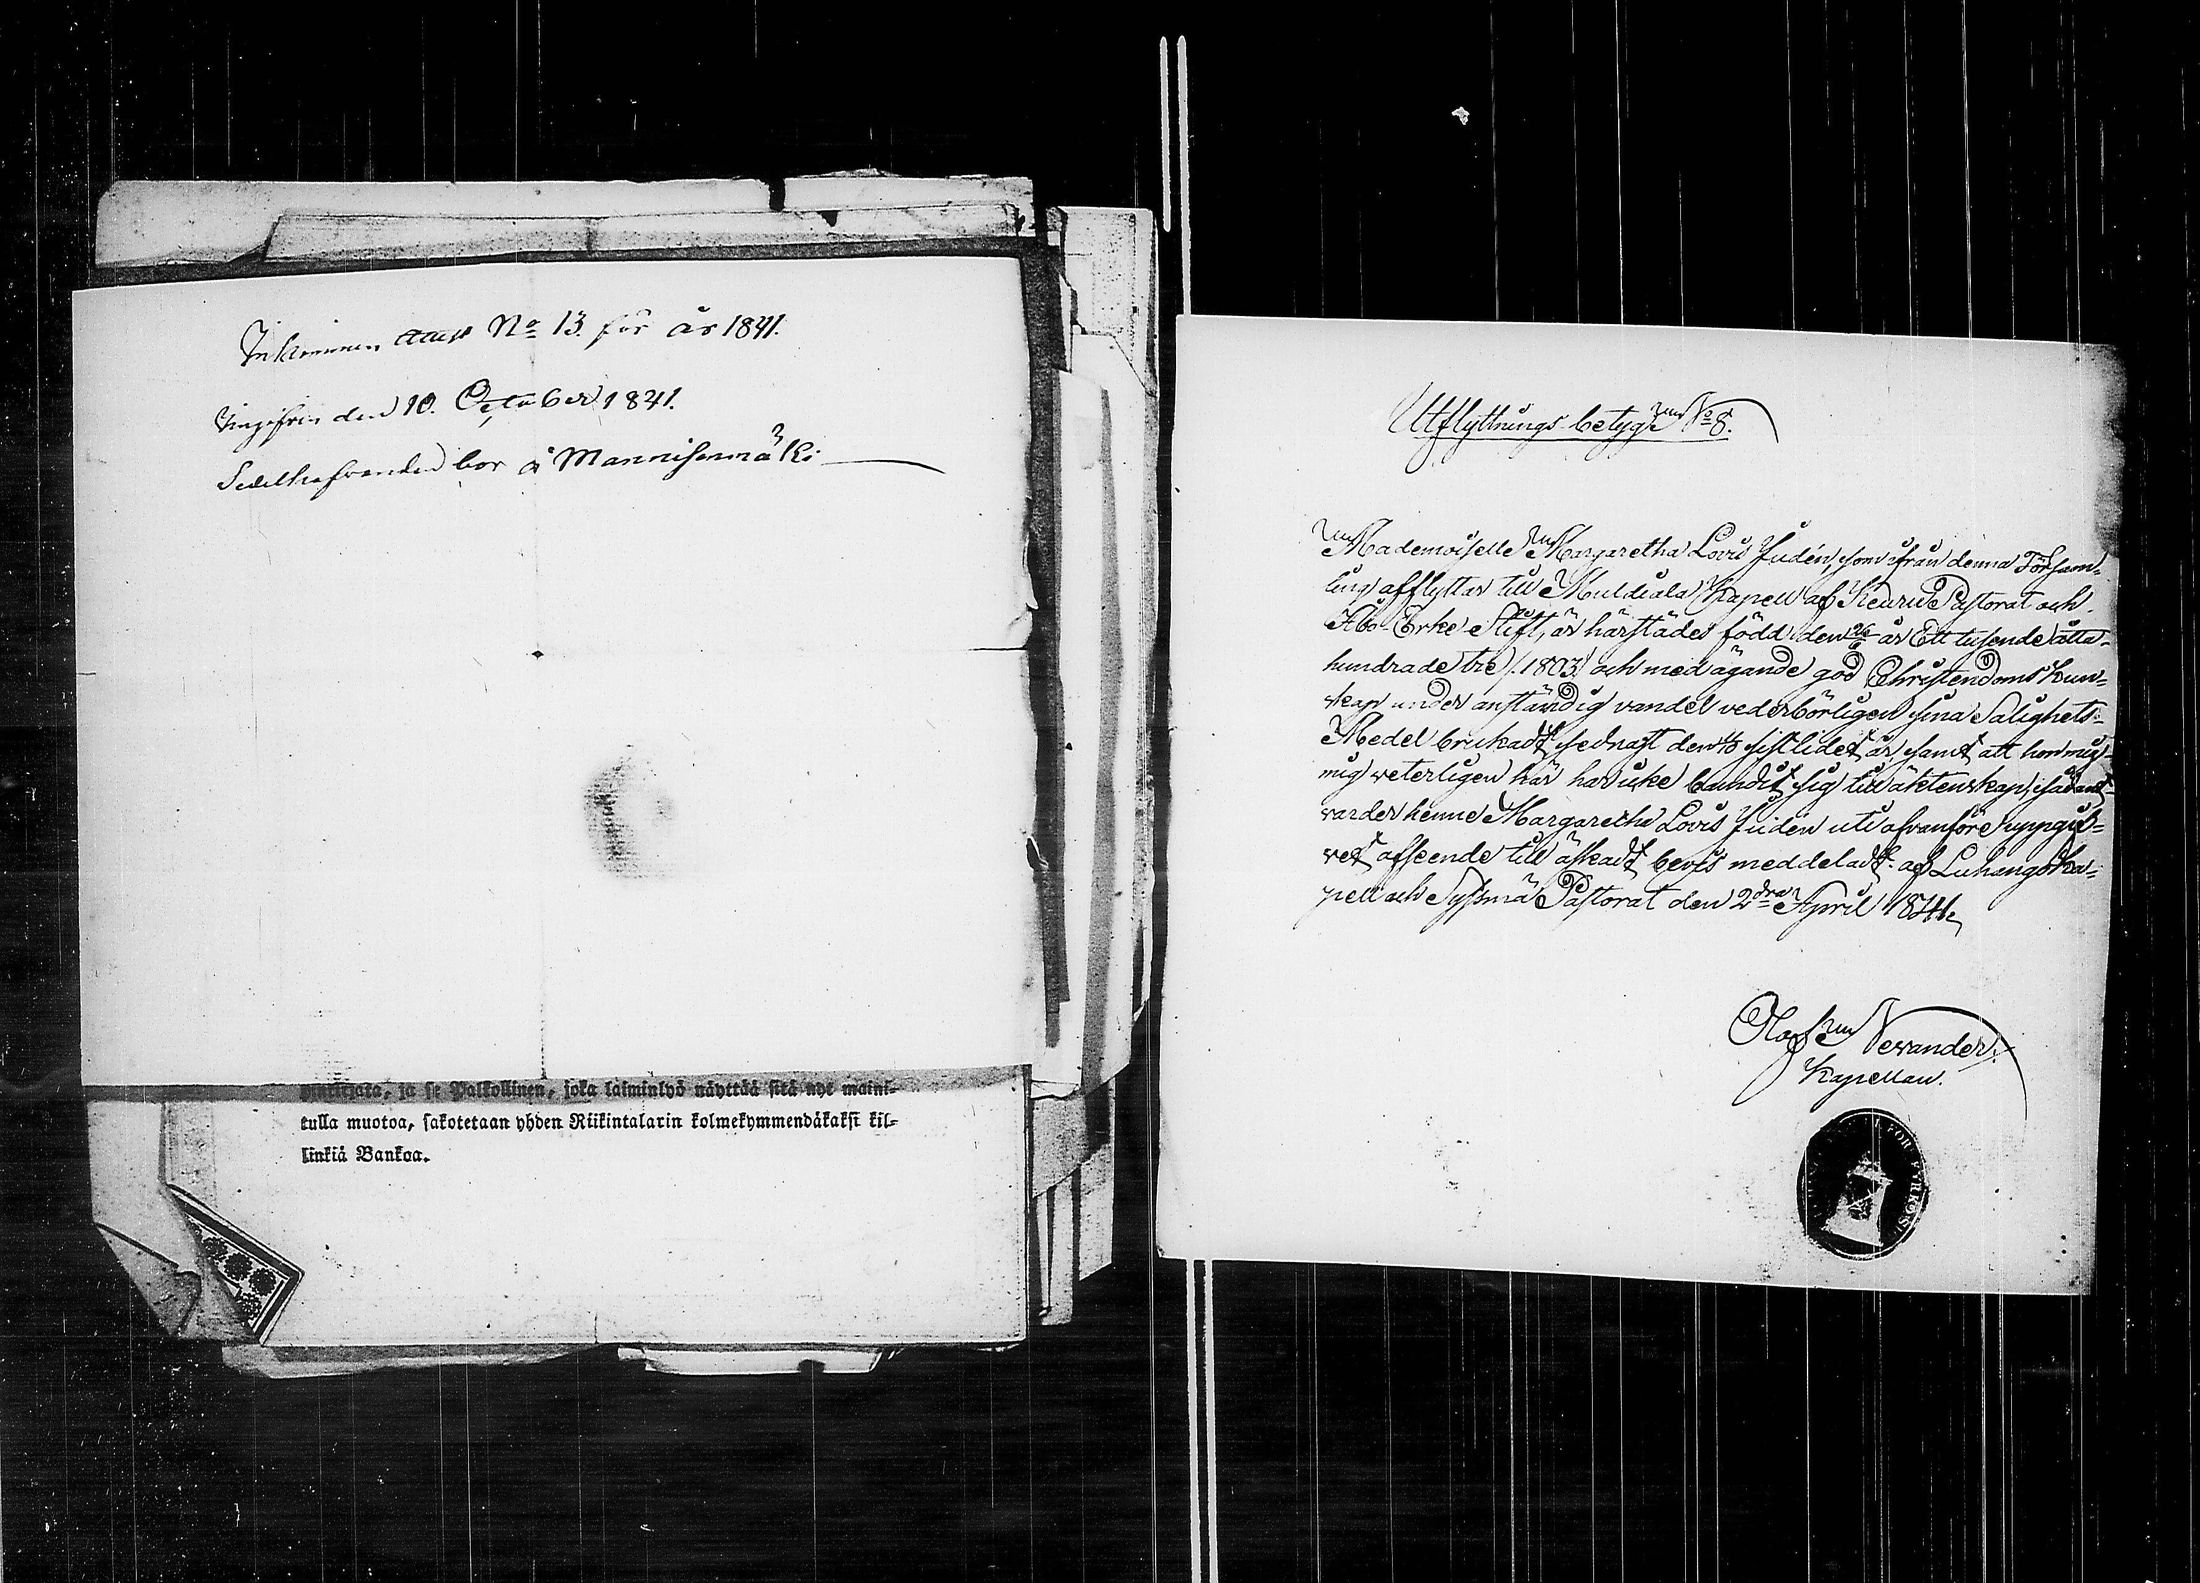 Inkommen attest No 13. för år 1841.
Ingifven den 10. October 1841.
Sedelhafvanden bor å Mannisenmäki
palkollisia, ja se Palkollinen, joka laiminlyö näyttää sitä nyt maini-
tulla muotoa, sakotetaan yhden Riikintalarin kolmekymmendäkaksi kil-
linkiä Bankoa.
Utflyttnings-betyg No 8.
Mademoiselle Margaretha Lovis Judén, som ifrån denna Försam-
ling afflyttar till Muldiala Kapell af Keuru Pastorat och
Åbo Erke Stift, är härstädes född den 26/6 år Ett tusende åtta-
hundrade tre /:1803:/ och med ägande god Christendoms Kun-
skap under anständig vandel vederbörligen sina Salighets-
Medel brukadt sednast den sistlidet år samt att hon mig-
mig veterligen här har icke bundit sig till äktenskap; sådant
varder henne Margaretha Lovis Judén uti ofvanföre uppgif-
vet afseende till äskadt bevis meddeladt. af Luhango Ka-
pell och Sysmä Pastorat den 2dra April 1841.
Olof Nevander.
Kapellan.